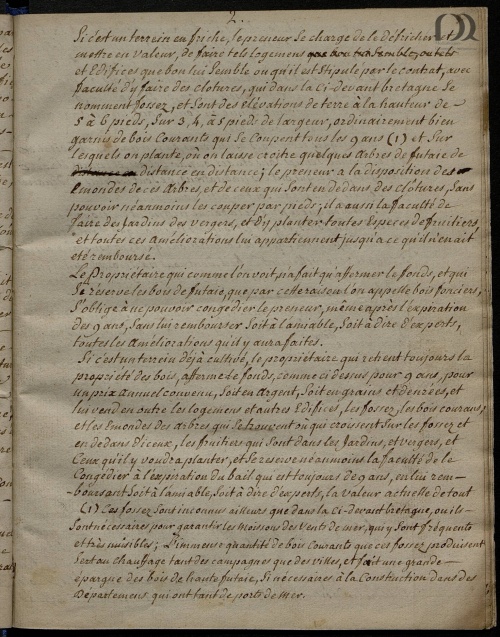 2.
Si c'est un terrein en friche, le preneur Se charge de le Défricher et
mettre en valeur, de faire tels logemens que bon lui Semble, ou tels
et Edifices que bon lui Semble ou qu'il est Stipulé par le contrat, avec
faculté d'y faire des clotures, qui dans la Ci-devant bretagne Se
nomment fossez, et Sont des élévations de terre à la hauteur de
5 à 6 pieds, Sur 3, 4, à 5 pieds de largeur, ordinairement bien
garnis de bois Courants qui Se Coupent tous les 9 ans (1) et Sur
lesquels on plante, où on laisse croitre quelques Arbres de futaie de
distance en distance; le preneur a la disposition des
Emondes de ces Arbres, et de ceux qui Sont en dedans des clotures, Sans
pouvoir néanmoins les couper par pieds; il a aussi la faculté de
faire des Jardins des vergers, et d'y planter toutes Especes de fruitiers
et toutes ces améliorations lui appartiennent jusqu'à ce qu'il n'en ait
été remboursé.
Le Propriétaire qui comme l'on voit, n'a fait qu'affermer le fonds, et qui
Se réserve les bois de futaie, que par cette raison l'on appelle bois fonciers,
S'oblige à ne pouvoir congédier le preneur, même après l'expiration
des 9 ans, Sans lui rembourser Soit à l'amiable, Soit à dire d'Experts,
toutes les améliorations qu'il y aura faites.
Si c'est un terrein déjà cultivé, le propriétaire qui retient toujours la
propriété des bois, afferme le fonds, comme ci dessus pour 9 ans, pour
un prix annuel convenu, Soit en argent, Soit en grains et denrées, et
lui vend en outre les logemens et autres Edifices, Les fossez, les bois courans,
et les Emondes des arbres qui Se trouvent ou qui croissent Sur les fossez et
en dedans d'iceux, les fruitiers qui Sont dans les Jardins, et vergers, et
Ceux qu'il y voudra planter, et Se reserve néanmoins la faculté de le
Congédier à l'expiration du bail qui est toujours de 9 ans, en lui rem-
boursant Soit à l'amiable, Soit à dire d'experts, la valeur actuelle de tout
(1) Ces fossez Sont inconnus ailleurs que dans la Ci-devant bretagne, ou ils
Sont nécessaires pour garantir les Moissons des vents de mer, qui y Sont fréquents
et très nuisibles; L'immense quantité de bois Courants que ces fossez produisent
Sert au chauffage tant des campagnes que des villes, et fait une grande
épargne des bois de haute futaie, Si nécessaires à la Construction dans des
Départemens, qui ont tant de ports de Mer.